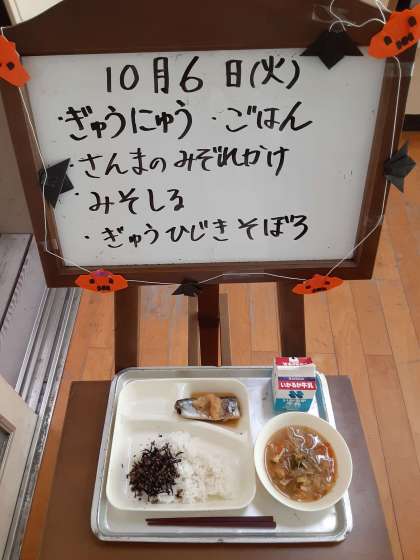 10月6日(火)
・ぎゅうにゅう・ごはん
・さんまのみぞれかけ
・みそしる
・ぎゅうひじきそぼろ
いかるが牛乳